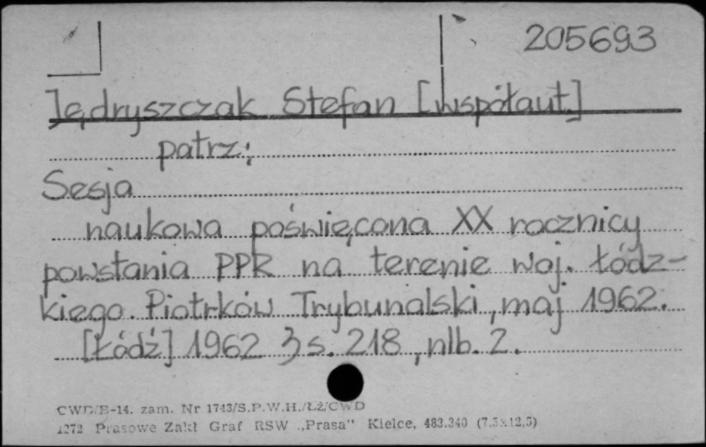 205693
Jędryszczak Stefan [współaut.]
patrz:
Sesja
naukowa poświęcona XX rocznicy
powstania PPR na terenie woj. Łódz-
kiego. Piotrków Trybunalski, maj 1962.
[Łódź] 1962 s. 218, nlb. 2.
CWD/E-14. zam. Nr 1743/S.P.W.H./ŁŻ/CWD
1272 Prasowe Zakł Graf RSW „Prasa" Kielce, 483.340 (7,5x12,5)